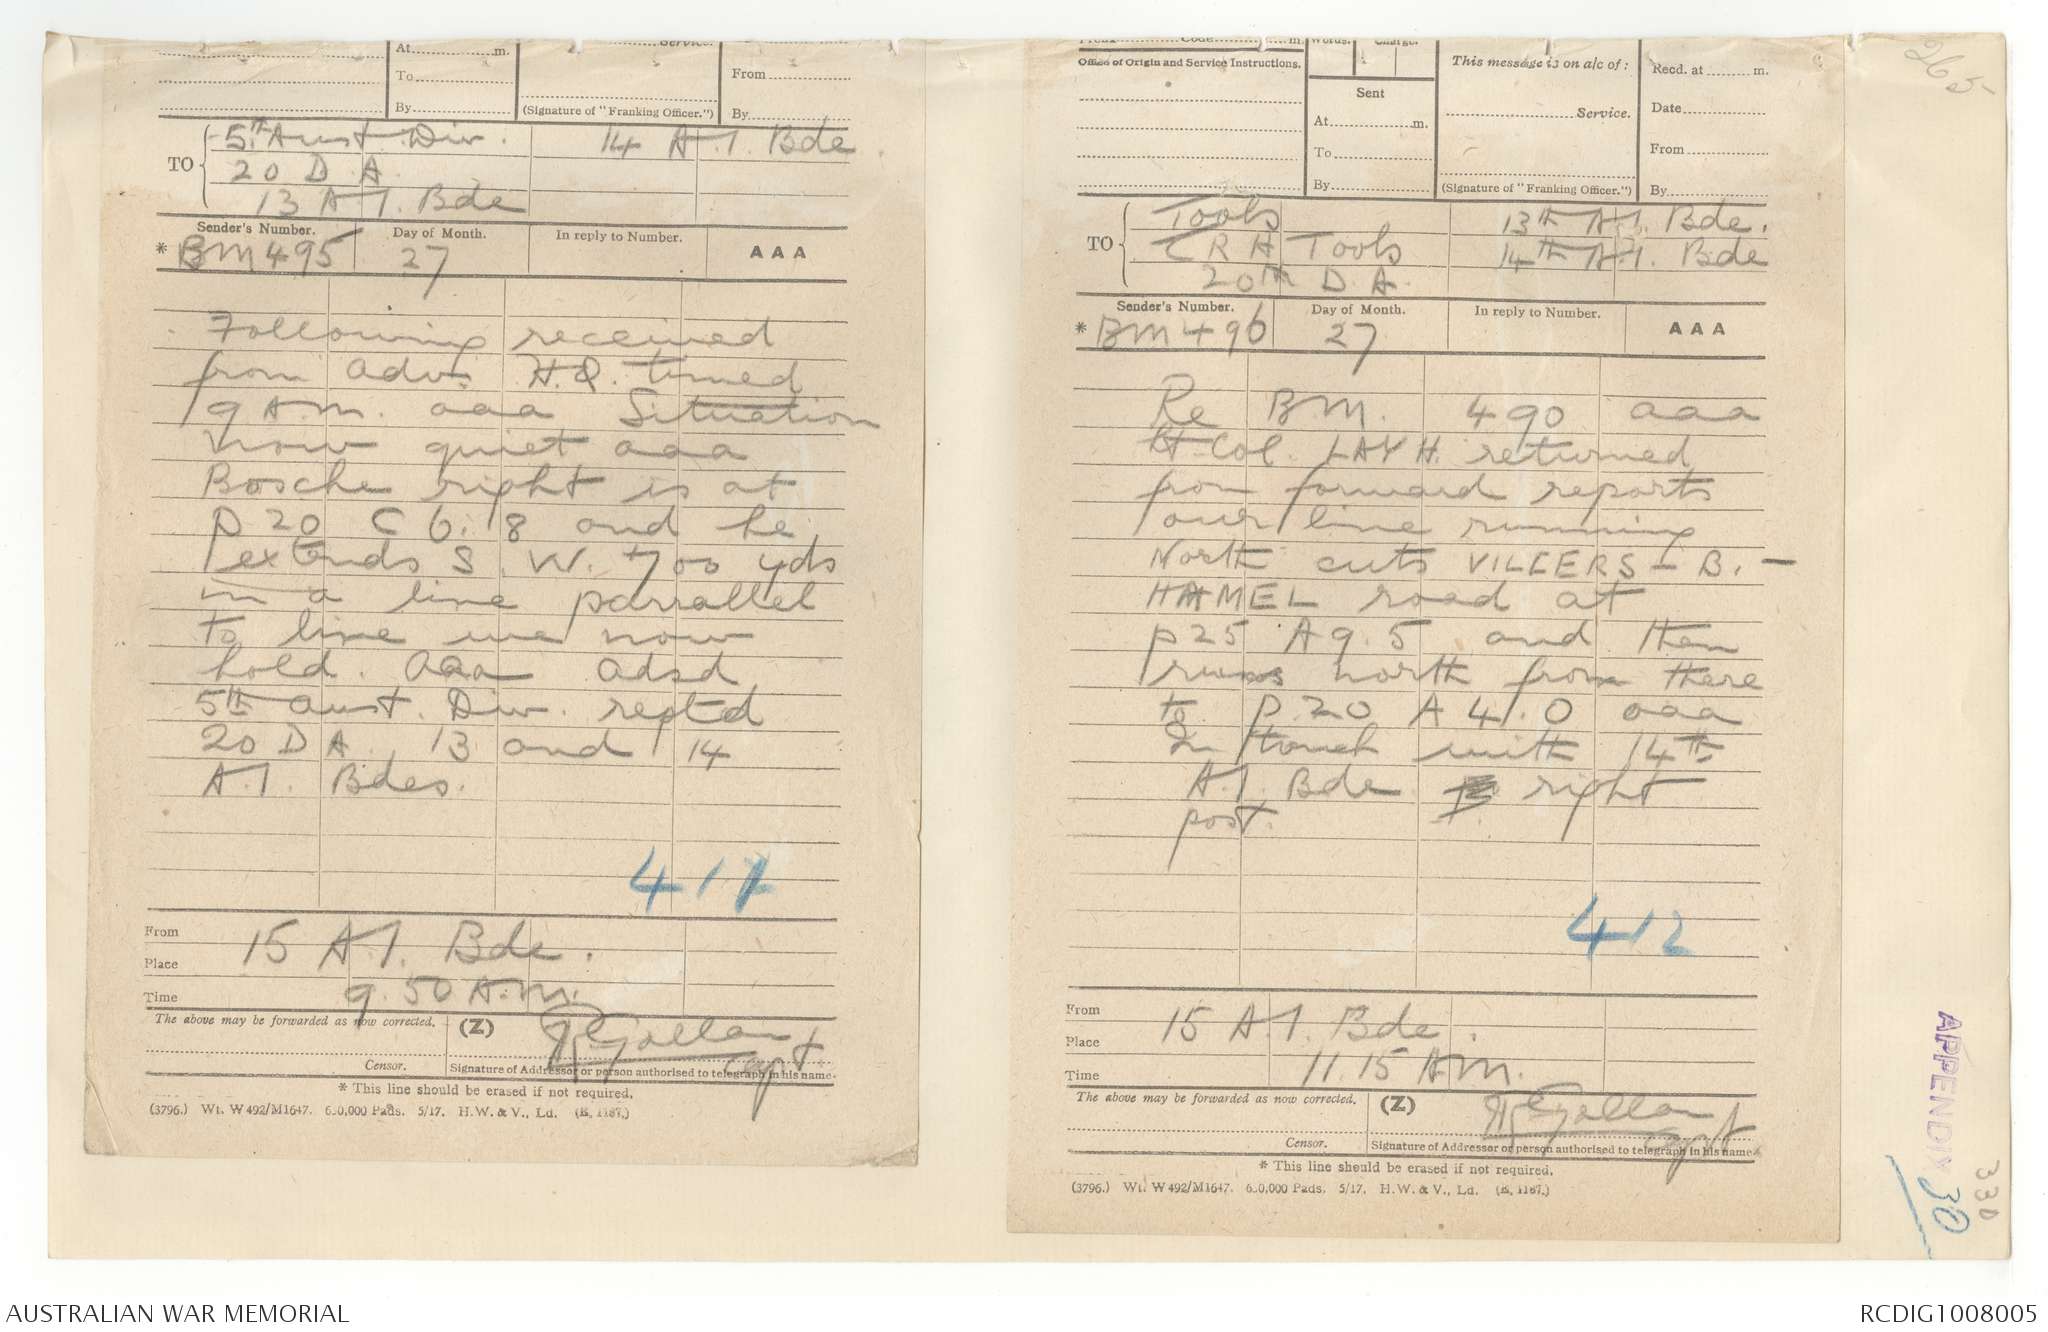 265
At..............m.
To
By
Service.
(Signature of "Franking Officer.")
From
By
TO
5th Aust. Div. 14 A.I. Bde
20 D A.
13 A.I. Bde
Sender's Number. Day of Month. In reply to Number. AAA
* BM 495 27
Following received
from adv. H.Q. timed
9 A.M. aaa Situation
now quiet aaa
Bosche right is at
P 20 C 6.8 and he
extends S.W. 700 yds
in a line parrallel
to line we now
hold. aaa adsd
5th Aust. Div. reptd
20 D A. 13 and 14
A.I. Bdes.
From 15 A.I. Bde.
Place
Time 9.50 A.M.
The above may be forwarded as now corrected. (Z)
Capt
Censor. Signature of Addressor or person authorised to telegraph in his name.
* This line should be erased if not required.
(3796.) Wt. W492/M1647. 600,000 Pads. 5/17. H.W. & V., Ld. (E. 1187.)
Code m. Words. Charge.
Office of Origin and Service Instructions.
Sent
At..............m.
To
By
This message is on a/c of:
Service.
(Signature of "Franking Officer.")
Recd. at ......... m.
Date
From
By
TO
Tools 13th A.I. Bde.
C R A Tools 14th A.I. Bde
20th D.A.
Sender's Number. Day of Month. In reply to Number. AAA
* BM 496 27
Re B.M. 490 aaa
Lt-Col. LAYH. returned
from forward reports
our line running
North cuts VILLERS - B. -
HAMEL road at
P25 A 9.5 and then
runs north from there
to P.20 A 4.0 aaa
In touch with 14th
A.I. Bde right
post.
412
From 15 A.I. Bde.
Place
Time 11.15 AM.
The above may be forwarded as now corrected. (Z)
Capt
Censor. Signature of Addressor or person authorised to telegraph in his name.
* This line should be erased if not required.
(3796.) Wt. W492/M1647. 600,000 Pads. 5/17. H.W. & V., Ld. (E. 1187.)
APPENDIX 30
330
AUSTRALIAN WAR MEMORIAL
RCDIG1008005